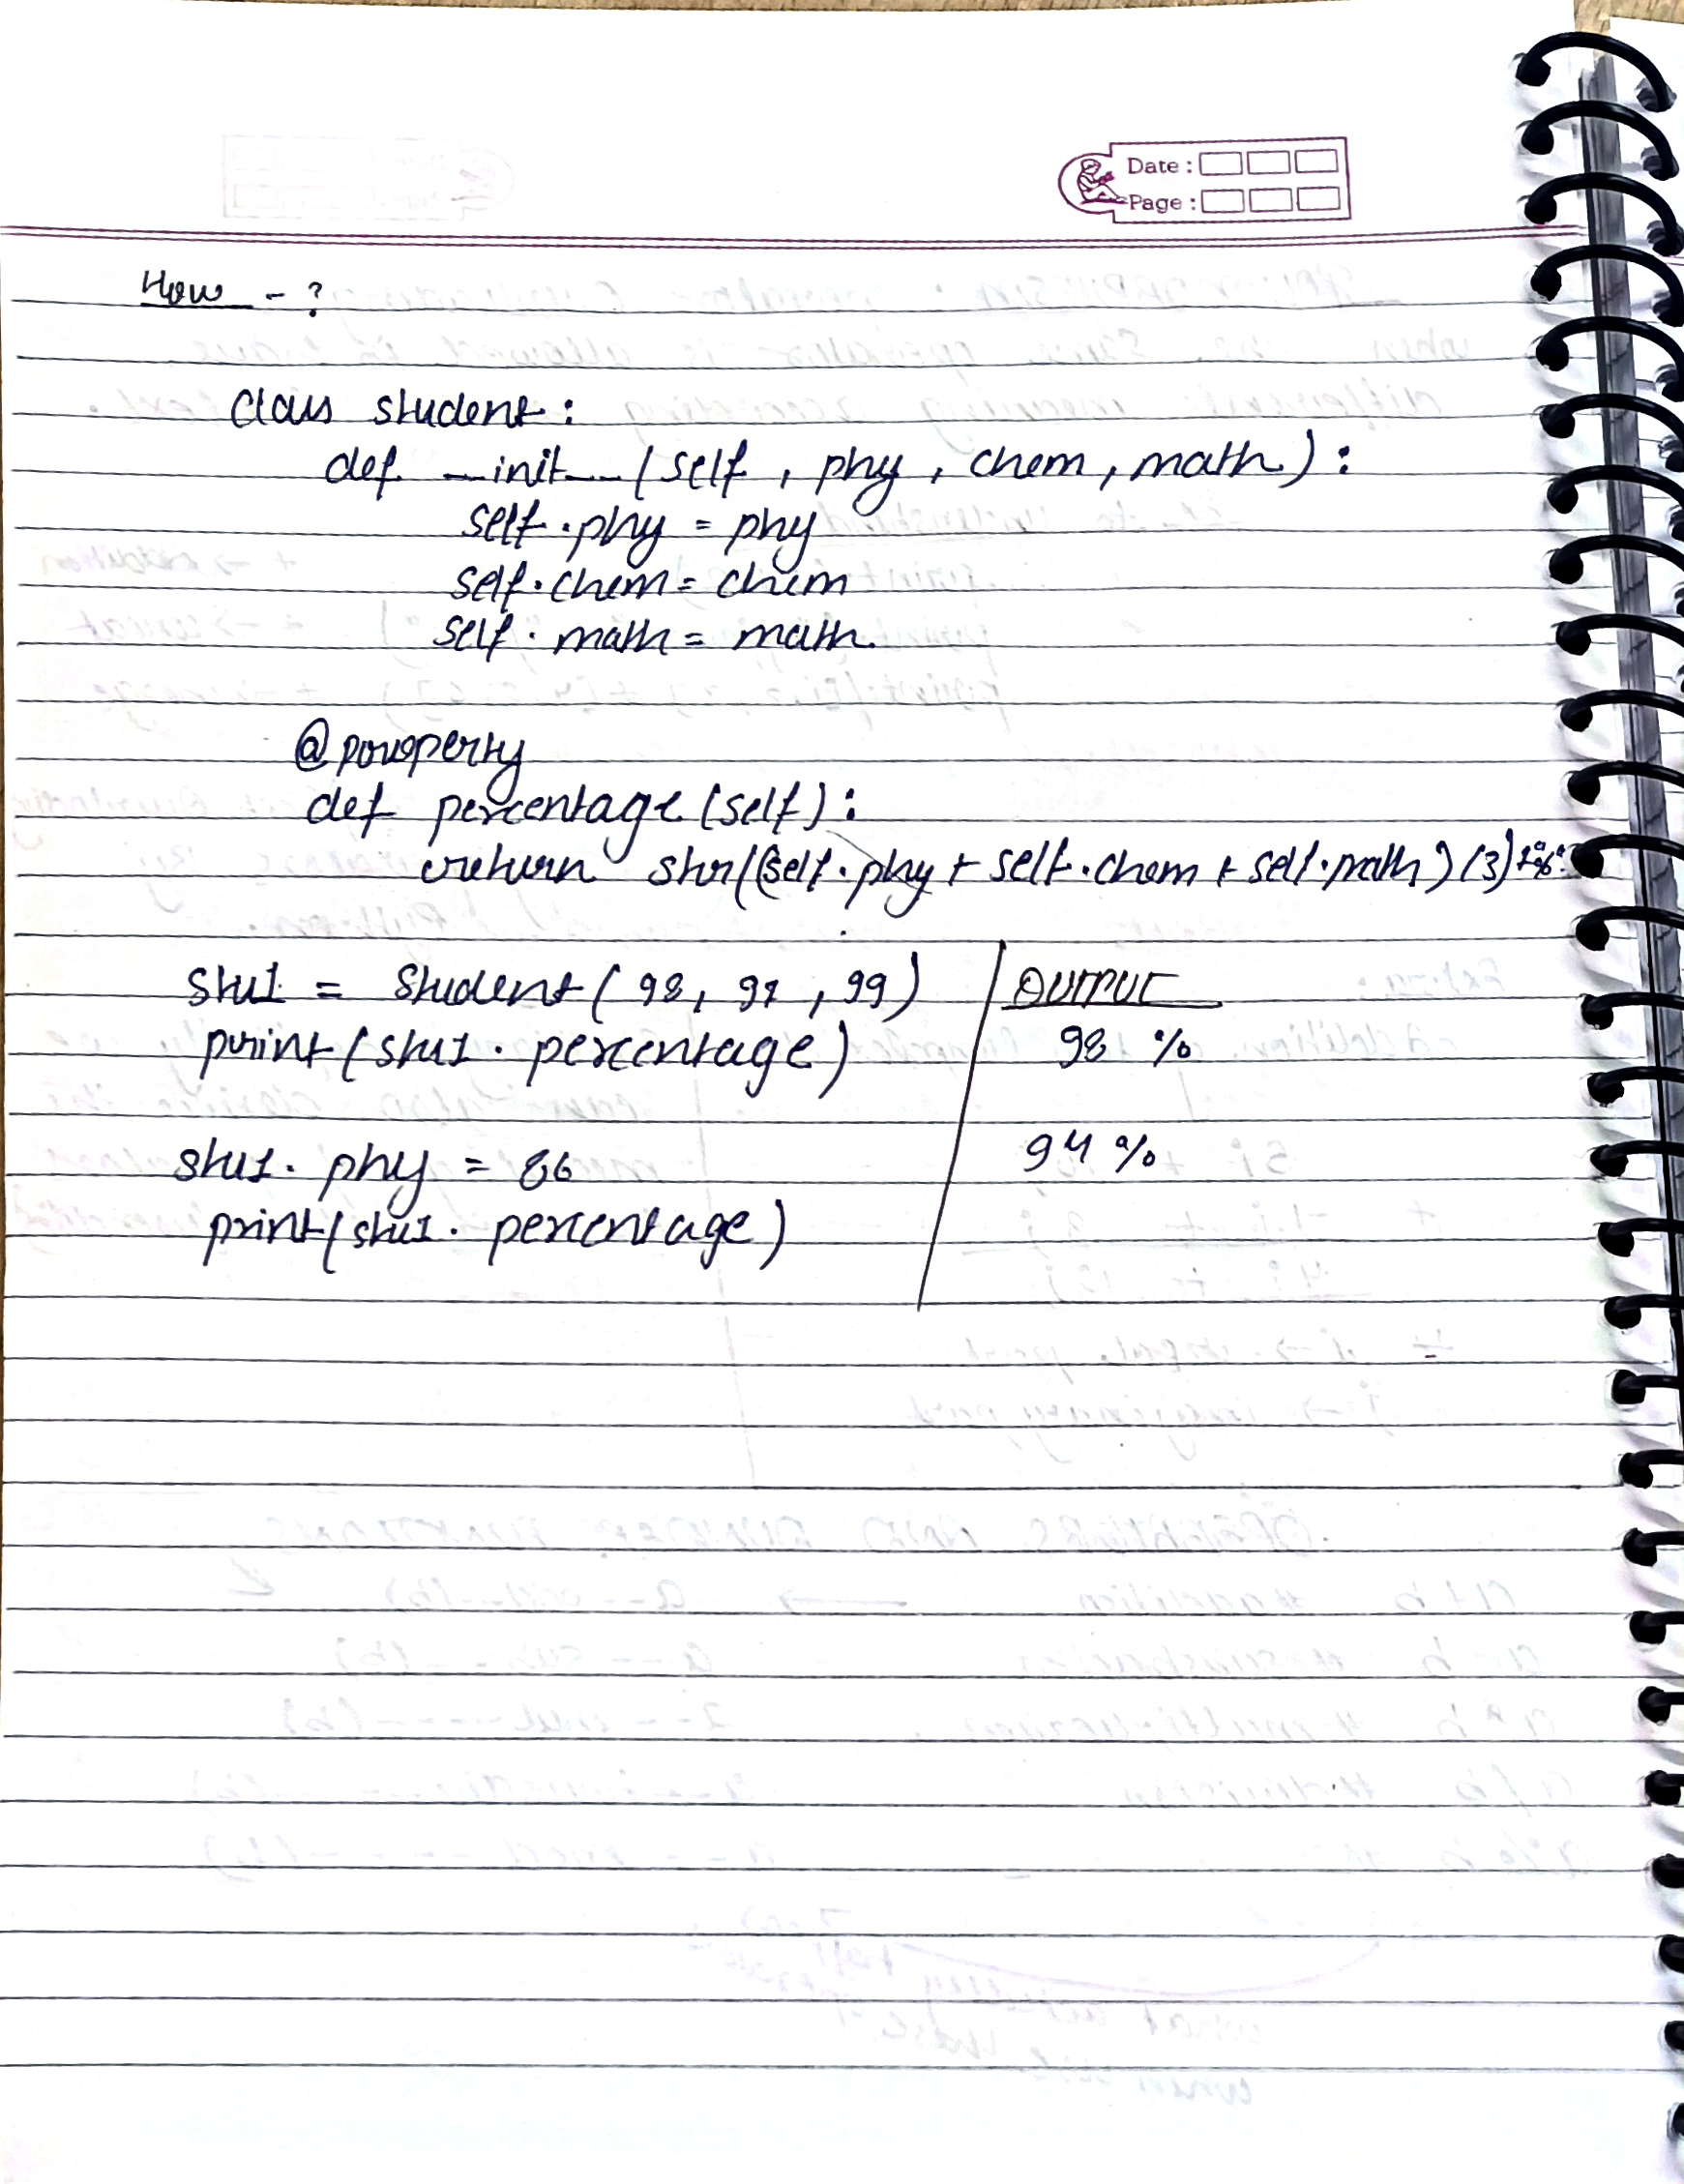 Date :
Page :
How - ?
class student:
def __init__(self, phy, chem, math):
self.phy = phy
self.chem = chem
self.math = math.
@property
def percentage(self):
return str((self.phy + self.chem + self.math) (3) + "%"
stu1 = student(98, 97, 99)
print(stu1.percentage)
stu1.phy = 86
print(stu1.percentage)
OUTPUT
98 %
94 %